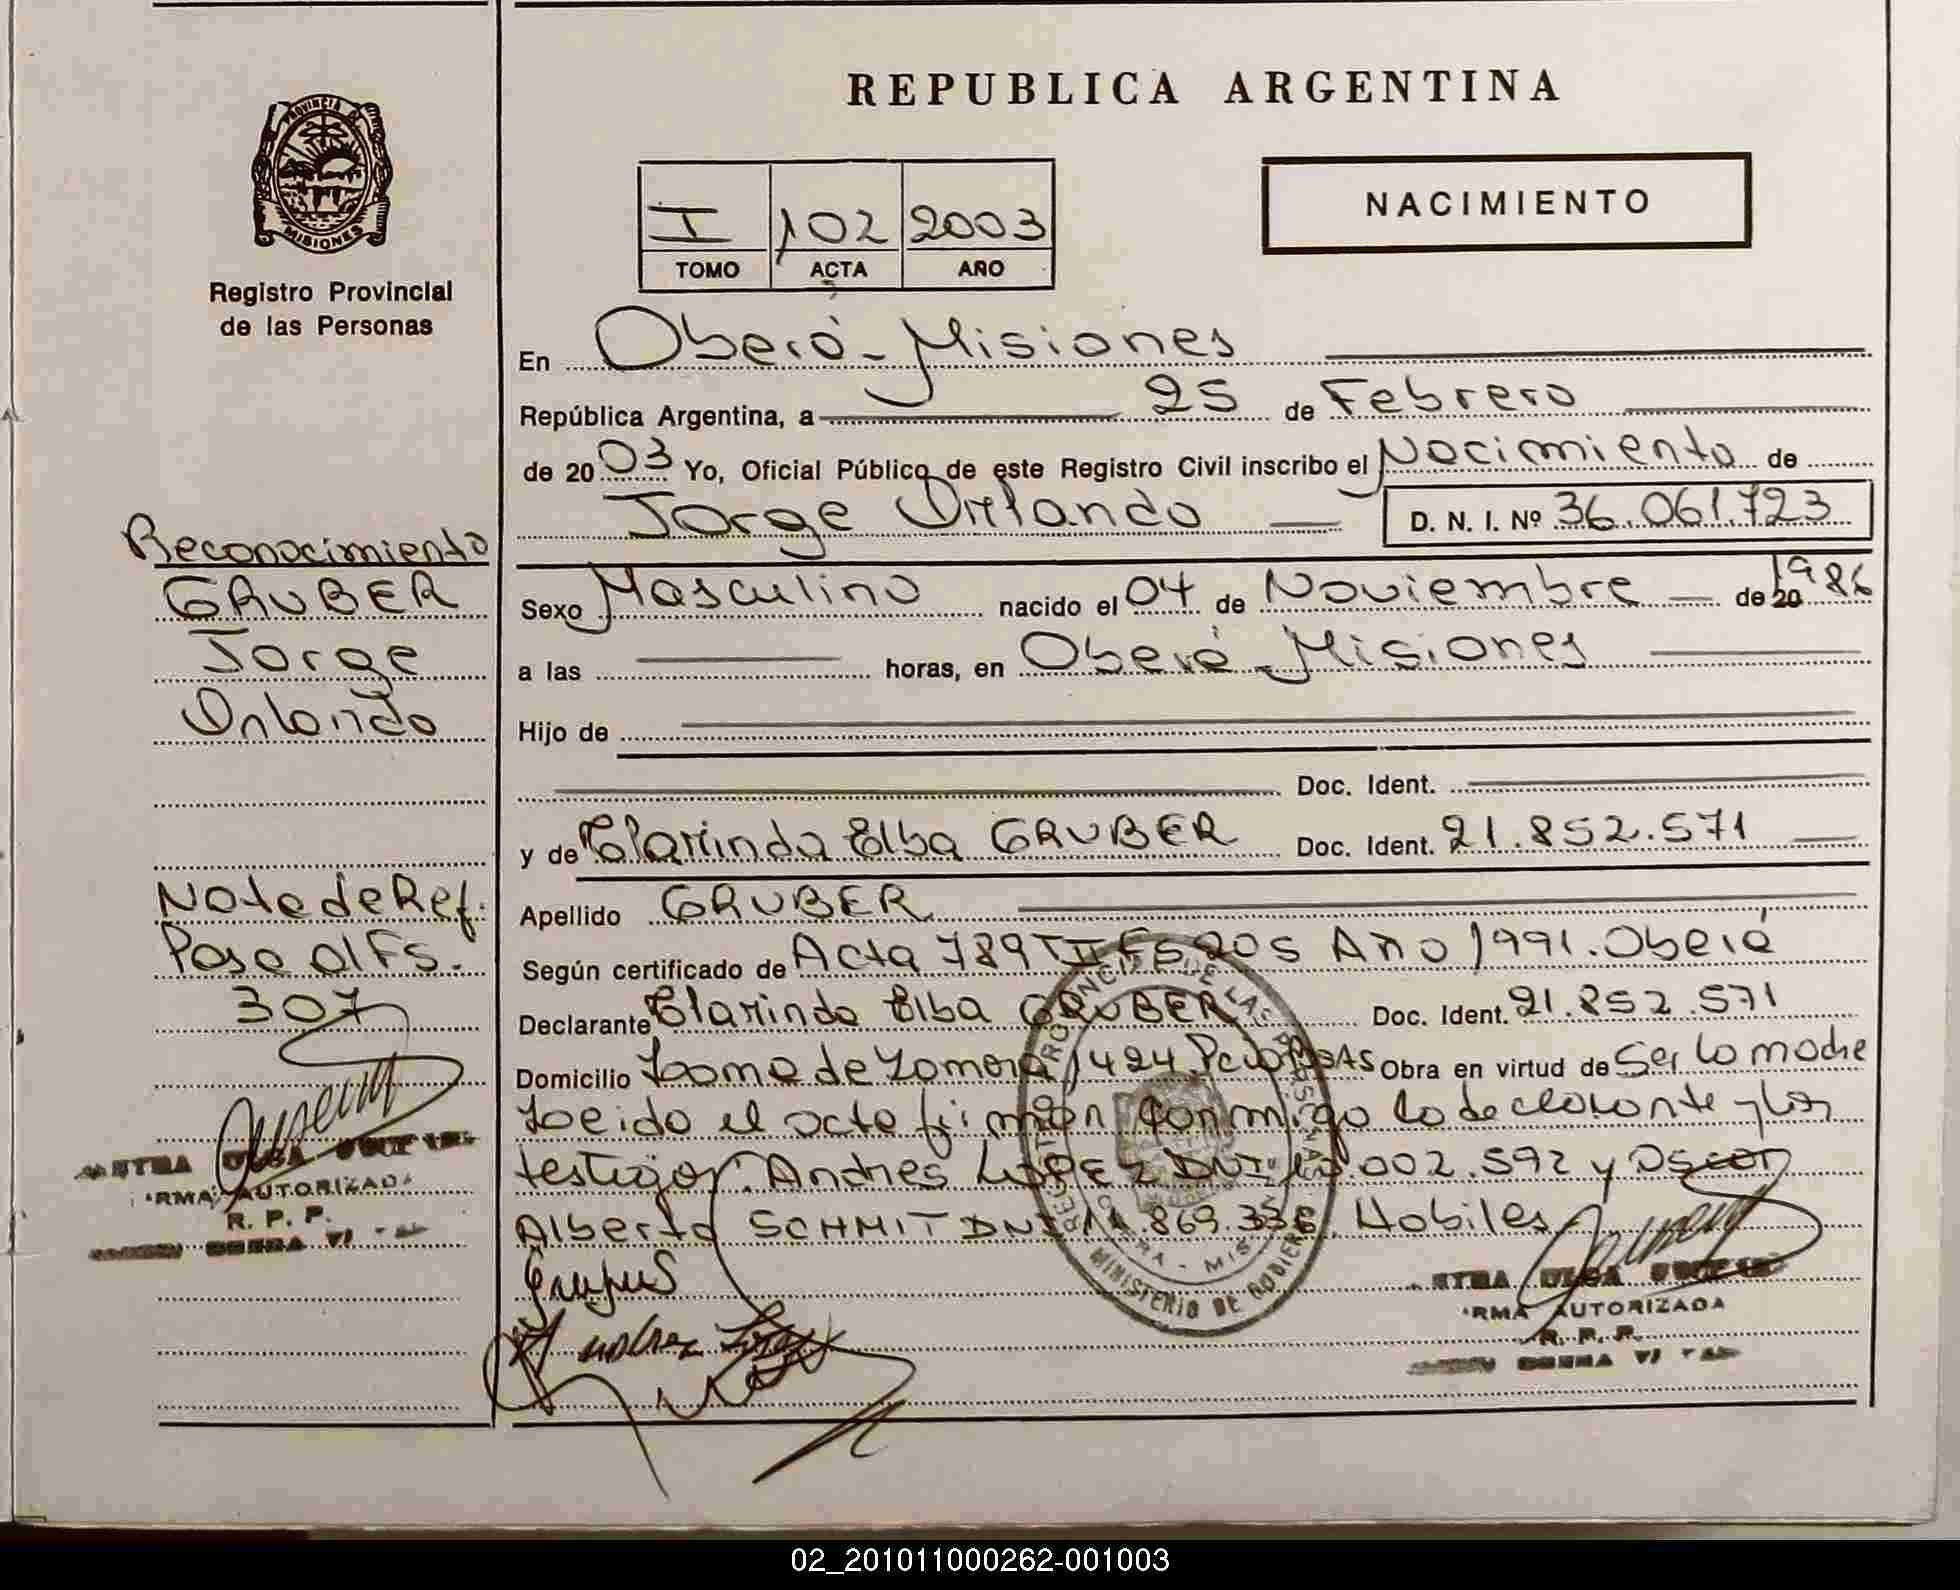 PROVINCIA DE
MISIONES
Registro Provincial
de las Personas
Reconocimiento
GRUBER
Jorge
Orlando
Nota de Ref.
Pasa al Fs.
307
FIRMA AUTORIZADA
R. P. P.
REPUBLICA ARGENTINA
NACIMIENTO
I 102 2003
TOMO ACTA AÑO
En Oberá - Misiones
República Argentina, a 25 de Febrero
de 2003 Yo, Oficial Público de este Registro Civil inscribo el Nacimiento de
Jorge Orlando D. N. I. Nº 36.061.723
Sexo Masculino nacido el 04 de Noviembre de 20 1986
a las horas, en Oberá - Misiones
Hijo de
Doc. Ident.
y de Clarinda Elba GRUBER Doc. Ident. 21.852.571
Apellido GRUBER
Según certificado de Acta 789 T II Fs 205 Año 1991. Oberá
Declarante Clarinda Elba GRUBER Doc. Ident. 21.852.571
Domicilio Loma de Zamora 1424. Obra en virtud de Ser la madre
Leido el acta firman conmigo la declarante y los
testigos: Andres LOPEZ DNI .002.592 y Oscar
Alberto SCHMIT DNI 869.336. Habiles
MINISTERIO DE GOBIERNO
FIRMA AUTORIZADA
R. P. P.
02_201011000262-001003